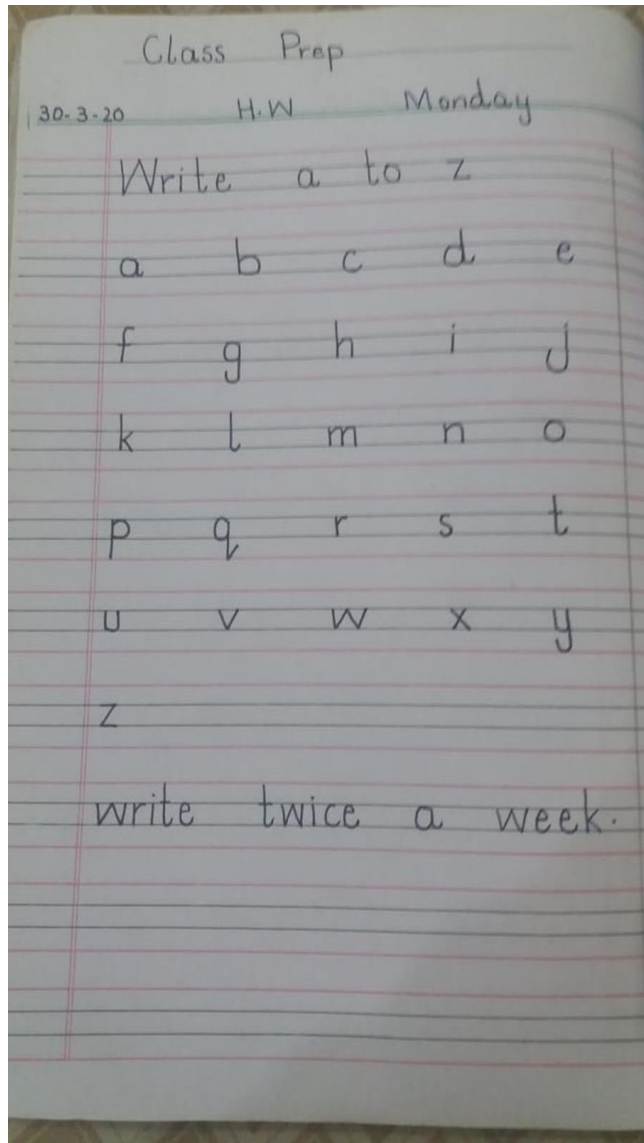 Class Prep
30-3-20 H.W Monday
Write a to z
a b c d e
f g h i j
k l m n o
p q r s t
u v w x y
z
write twice a week.